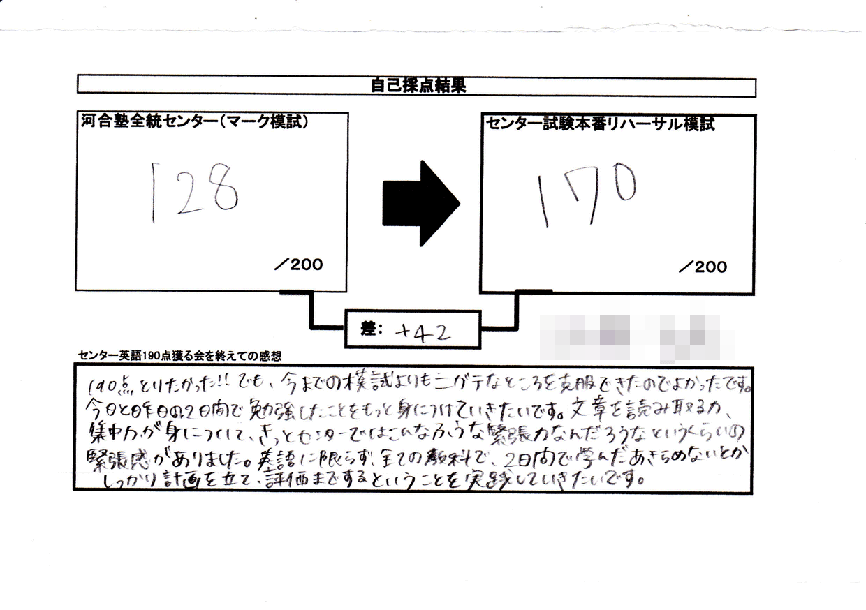 自己採点結果
河合塾全統センター（マーク模試）
128
／200
センター試験本番リハーサル模試
170
／200
差： +42
センター英語190点獲る会を終えての感想
190点とりたかった!! でも、今までの模試よりもニガテなところを克服できたのでよかったです。
今日と昨日の2日間で勉強したことをもっと身につけていきたいです。文章を読み取る力、
集中力が身について、きっとセンターではこんなふうな緊張力なんだろうなというくらいの
緊張感がありました。英語に限らず、全ての教科で、2日間で学んだあきらめないとか
しっかり計画を立て、評価までするということを実践していきたいです。